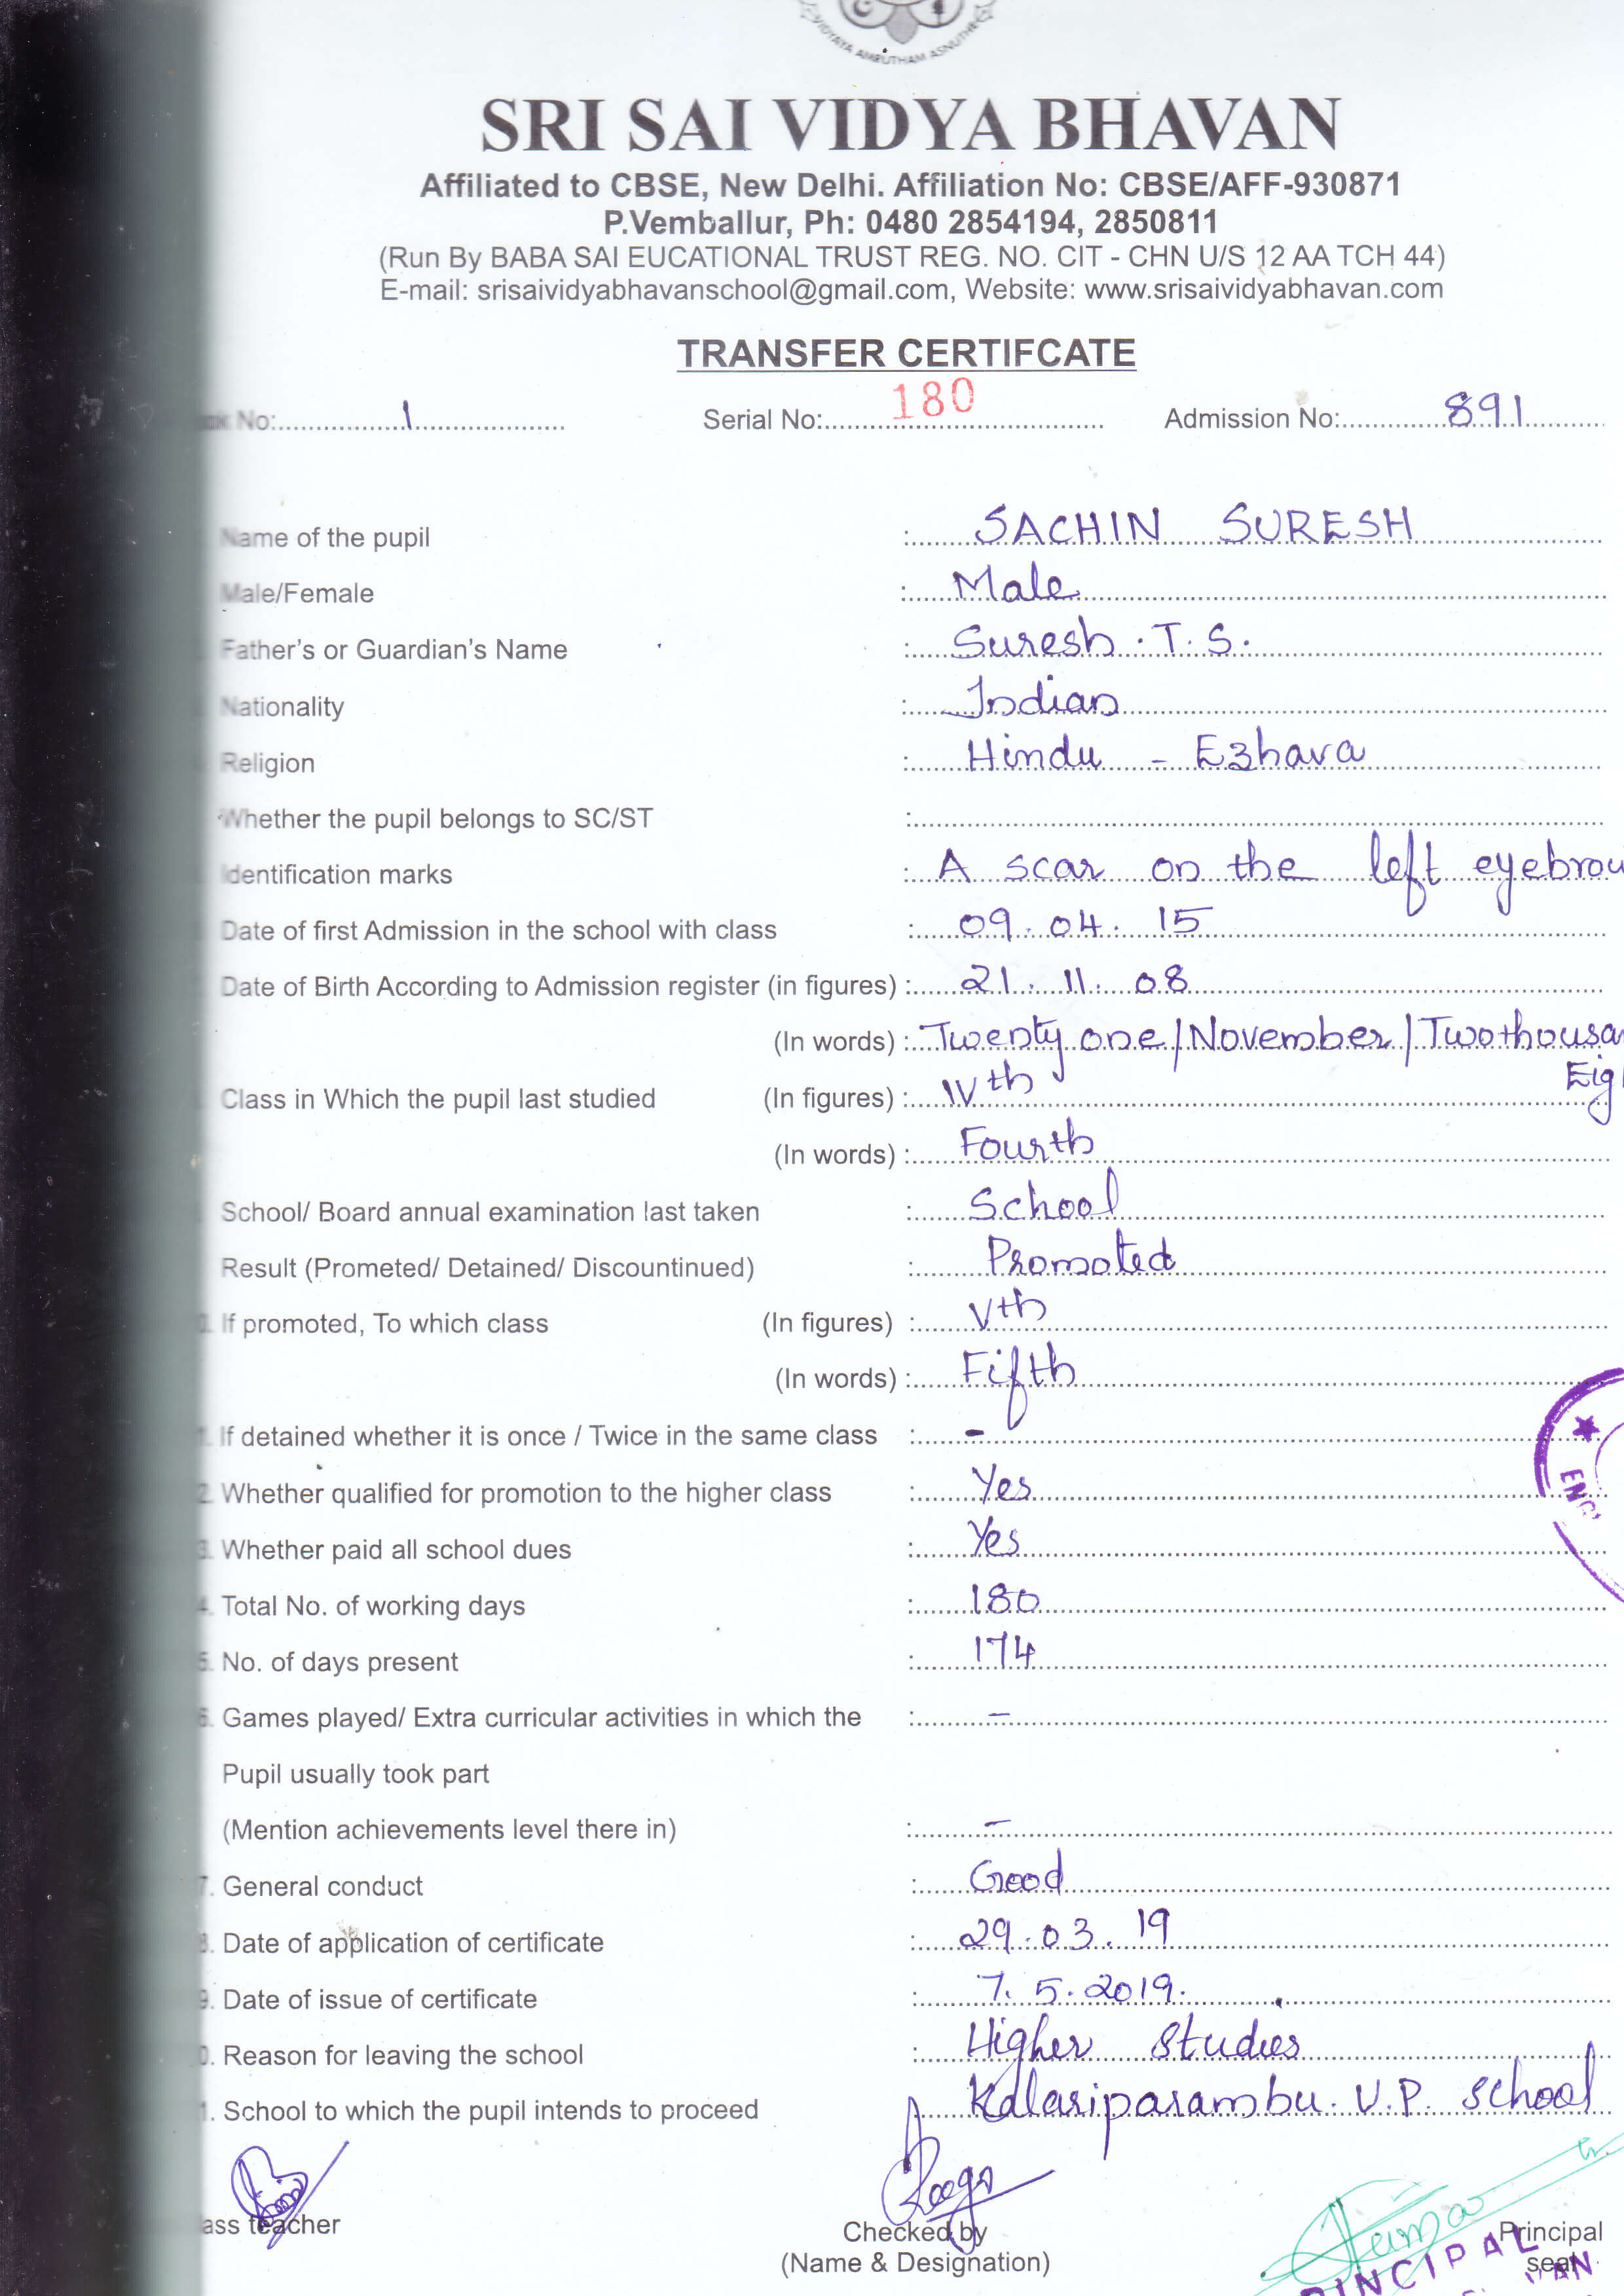 VIDYATA AMRUTHAM ASNUTHE
SRI SAI VIDYA BHAVAN
Affiliated to CBSE, New Delhi. Affiliation No: CBSE/AFF-930871
P.Vemballur, Ph: 0480 2854194, 2850811
(Run By BABA SAI EUCATIONAL TRUST REG. NO. CIT - CHN U/S 12 AA TCH 44)
E-mail: srisaividyabhavanschool@gmail.com, Website: www.srisaividyabhavan.com
TRANSFER CERTIFCATE
No: 1 Serial No: 180 Admission No: 891
Name of the pupil : SACHIN SURESH
Male/Female : Male
Father's or Guardian's Name : Suresh . T. S.
Nationality : Indian
Religion : Hindu - Ezhava
Whether the pupil belongs to SC/ST :
Identification marks : A scar on the left eyebrow
Date of first Admission in the school with class : 09. 04. 15
Date of Birth According to Admission register (in figures) : 21. 11. 08
(In words) : Twenty one/November/Twothousa
Eig
Class in Which the pupil last studied (In figures) : IVth
(In words) : Fourth
School/ Board annual examination last taken : School
Result (Prometed/ Detained/ Discountinued) : Promoted
If promoted, To which class (In figures) : Vth
(In words) : Fifth
If detained whether it is once / Twice in the same class : -
2. Whether qualified for promotion to the higher class : Yes
3. Whether paid all school dues : Yes
4. Total No. of working days : 180
5. No. of days present : 174
6. Games played/ Extra curricular activities in which the : -
Pupil usually took part
(Mention achievements level there in) : -
7. General conduct : Good
8. Date of application of certificate : 29.03.19
9. Date of issue of certificate : 7. 5. 2019.
0. Reason for leaving the school : Higher studies
1. School to which the pupil intends to proceed : Kalariparambu. U.P. School
ass teacher Checked by Principal
(Name & Designation) seal
ENG
RINCIPAL
VAN